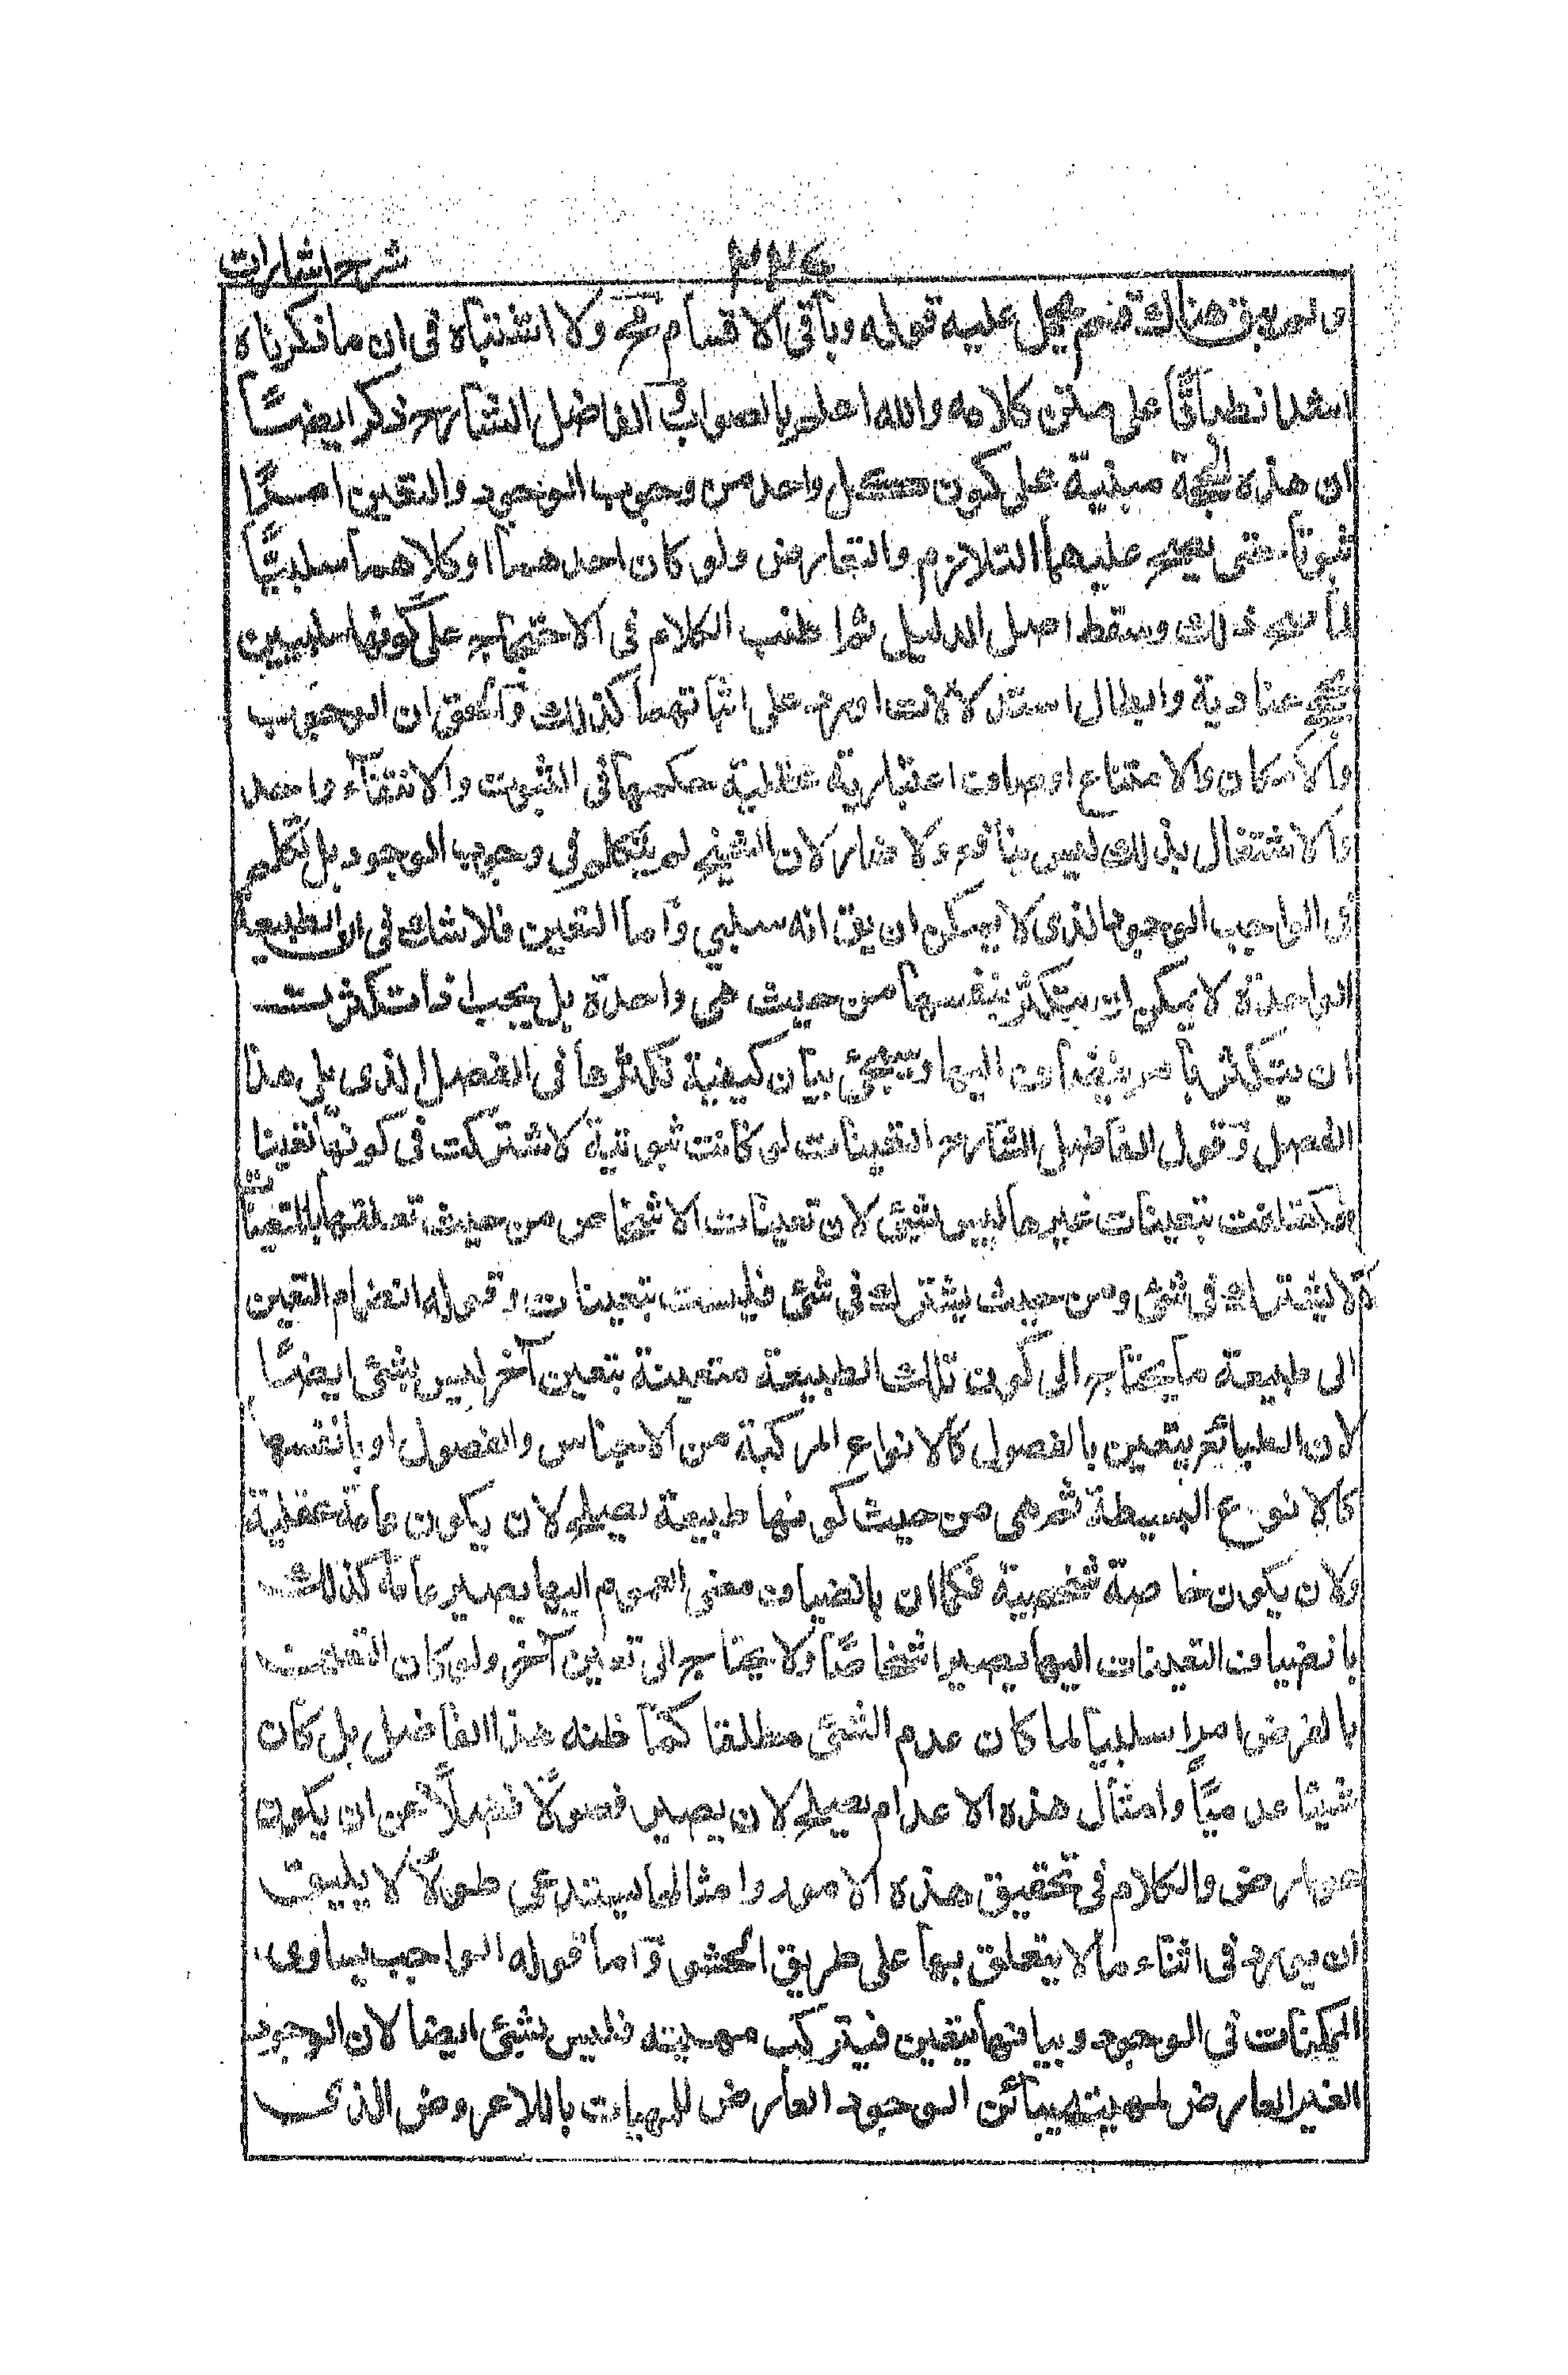 شرح اشارات
ولم يبق هناك قسم يحمل عليه قوله وباقى الاقسام مح ولا اشتباه فى ان ما ذكرناه
اشد انطباقا على متن كلامه والله اعلم بالصواب الفاضل الشارح ذكر ايضا
ان هذه الحجة مبنية على كون كل واحد من وجوب الوجود والتعين امرا
ثبوتيا حتى يصح عليهما التلازم والتعارض ولو كان احدهما او كلاهما سلبيا
لما صح ذلك وسقط اصل الدليل ثم اطنب الكلام فى الاحتجاج على كونهما سلبيين
بحجج عنادية وابطال استدلالات اوردت على اثباتهما كذلك والحق ان الوجوب
والامكان والامتناع اوصاف اعتبارية عقلية حكمها فى الثبوت والانتفاء واحد
والاشتغال بذلك ليس بنافع ولا ضار لان الشيخ لم يتكلم فى وجوب الوجود بل تكلم
فى الواجب الوجود الذى لا يمكن ان يق انه سلبي واما التعين فلا شك فى ان الطبيعة
الواحدة لا يمكن ان يتكثر بنفسها من حيث هى واحدة بل يجب اذا تكثرت
ان يتكثر بامر يضاف اليها وسيجئ بيان كيفية تكثرها فى الفصل الذى يلى هذا
الفصل وقول الفاضل الشارح التعينات لو كانت ثبوتية لاشتركت فى كونها تعينا
واختلفت بتعينات غيرها ليس بشئ لان تعينات الاشخاص من حيث تعلقها بالتعينات
لا يشترك فى شئ ومن حيث يشترك فى شئ فليست بتعينات وقوله انضمام التعين
الى طبيعة ما يحتاج الى كون تلك الطبيعة متعينة بتعين آخر ليس بشئ ايضا
لان الطبائع يتعين بالفصول كالانواع المركبة من الاجناس والفصول او بانفسها
كالانواع البسيطة ثم هى من حيث كونها طبيعة يصلح لان يكون عامة عقلية
ولان يكون خاصة شخصية فكما ان بانضياف معنى العموم اليها يصير عامة كذلك
بانضياف التعينات اليها يصير اشخاصا ولا يحتاج الى تعين آخر ولو كان التعين
بالفرض امرا سلبيا لما كان عدم الشئ مطلقا كما ظنه هذا الفاضل بل كان
شيئا عدميا وامثال هذه الاعدام يصلح لان يصير فصولا فضلا عن ان يكون
عوارض والكلام فى تحقيق هذه الامور وامثالها يستدعى طولا لا يليق
ان يورد فى اثناء ما لا يتعلق بها على طريق الحشو واما قوله الواجب يساوى
الممكنات فى الوجود ويباينها بتعين فيتركب مهيته فليس بشئ ايضا لان الوجود
الغير العارض لمهيته يباين الوجود العارض للمهيات باللاعروض الذى